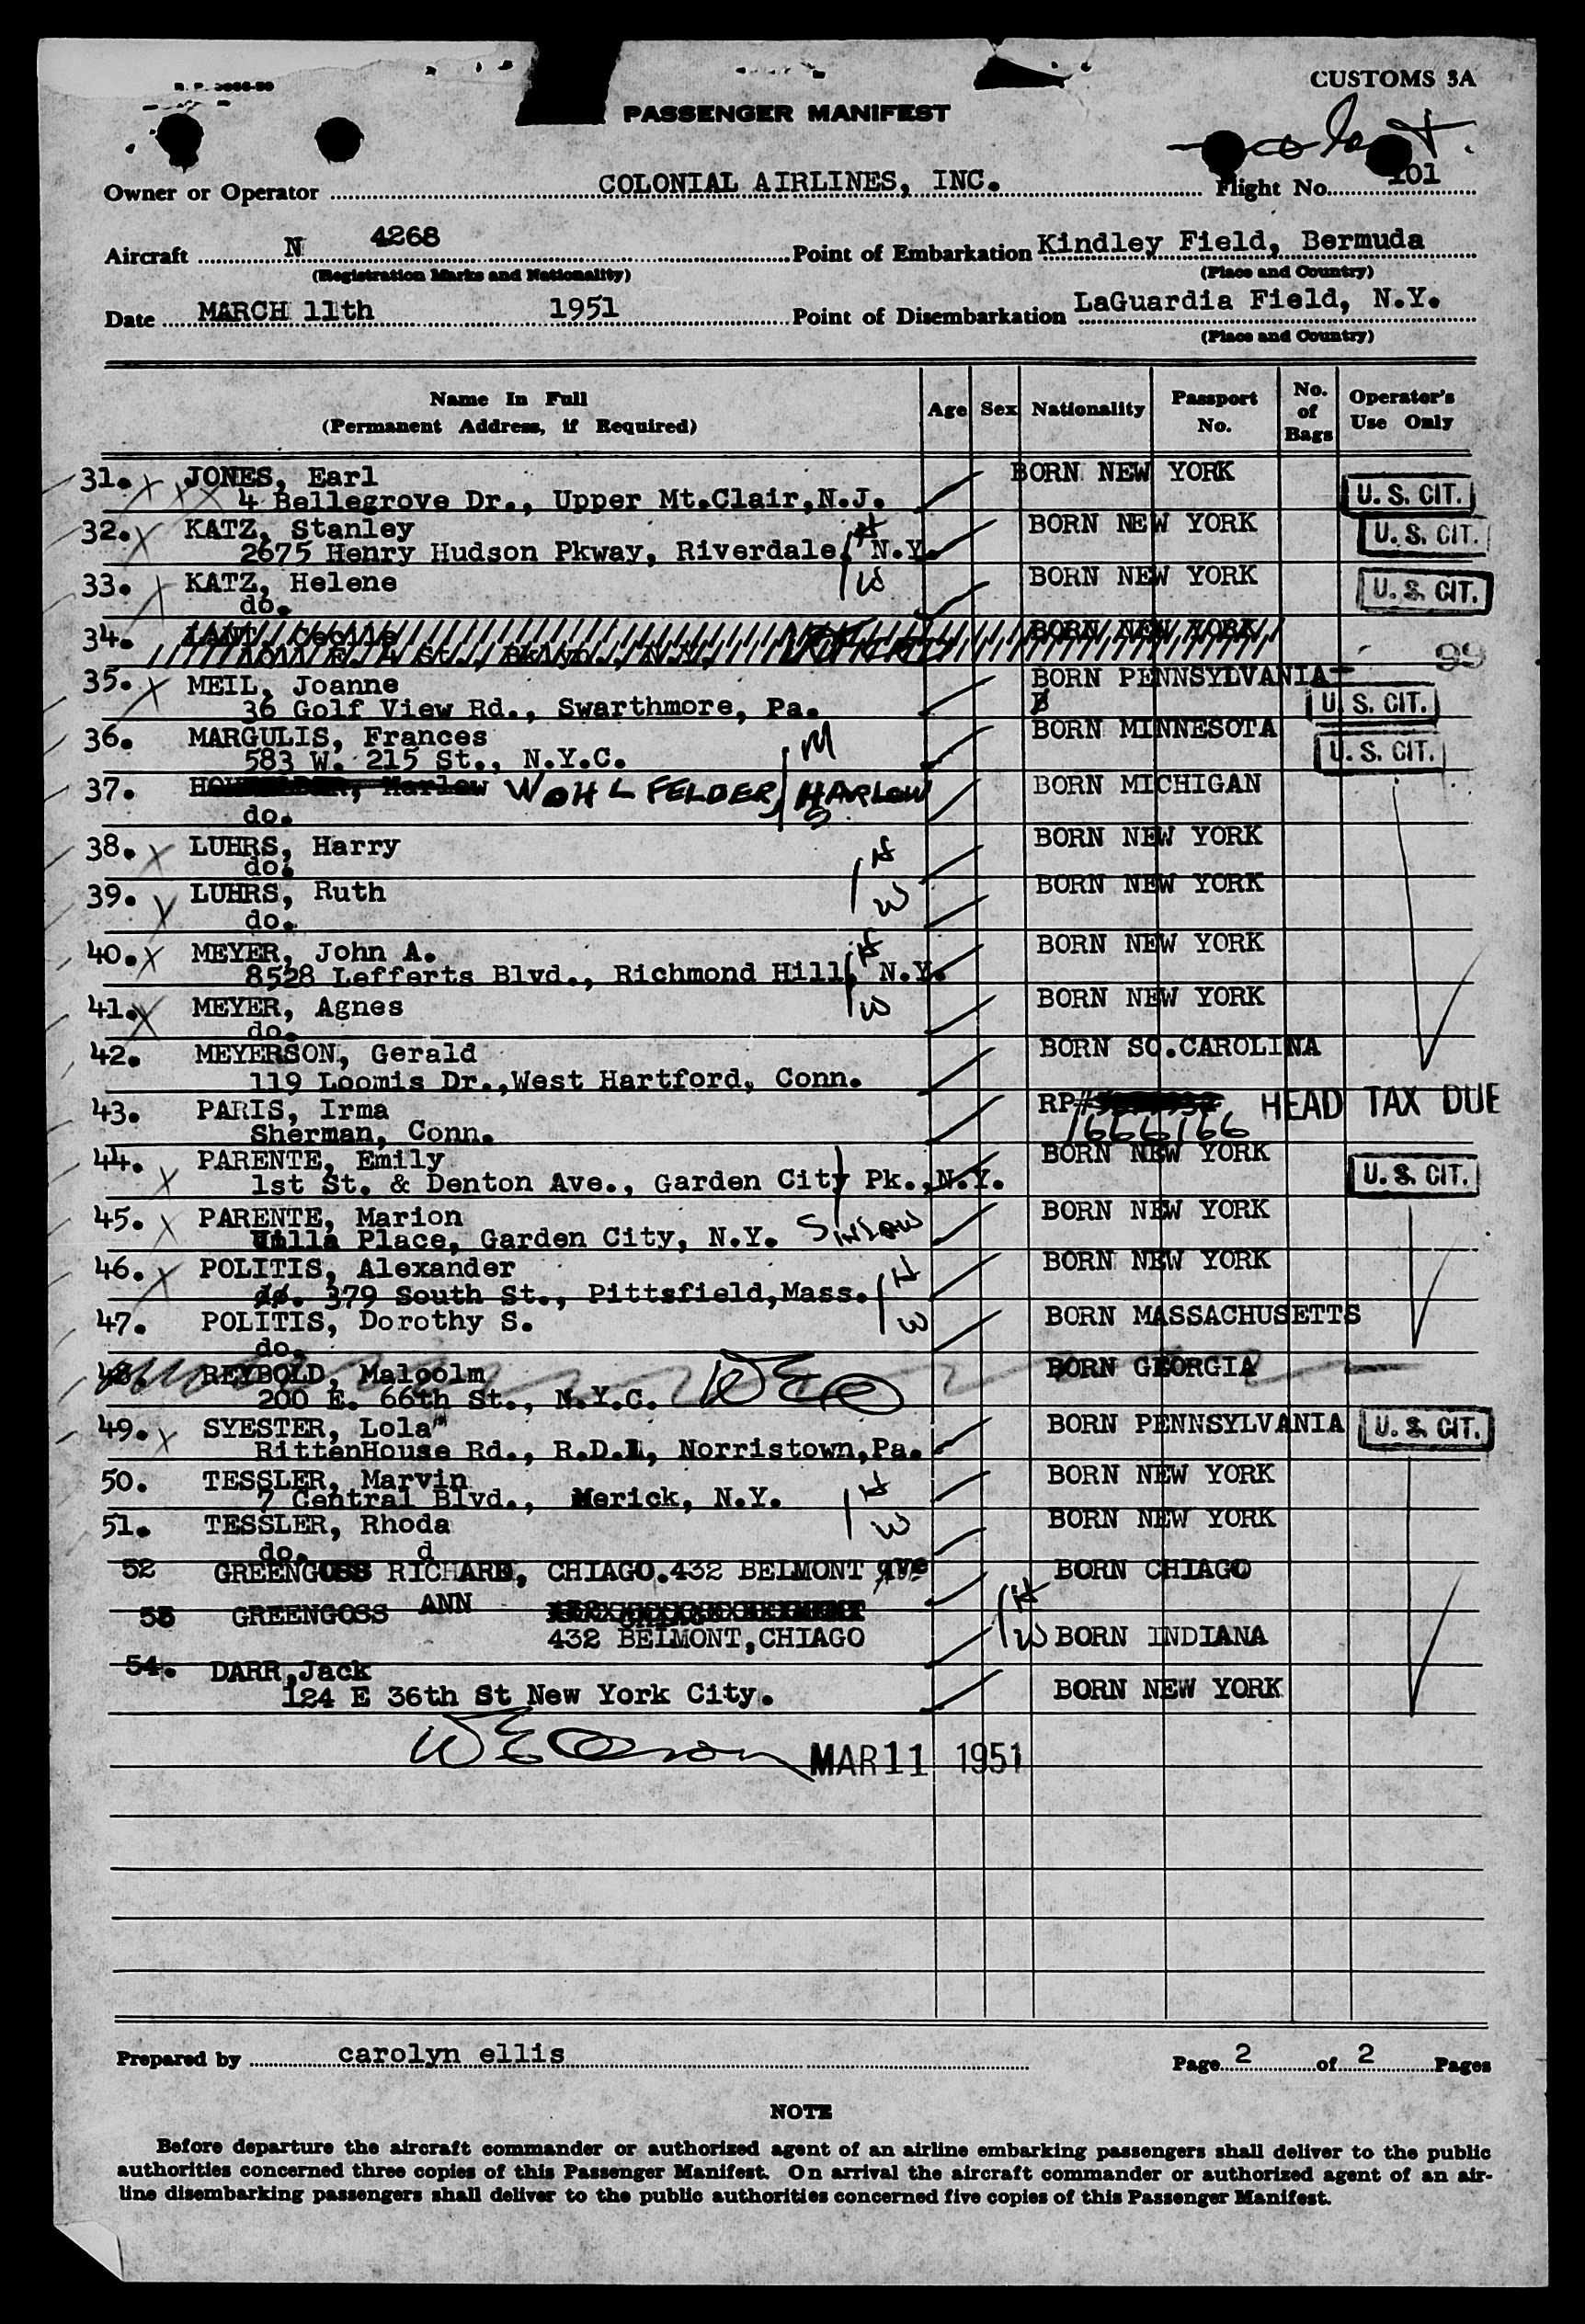 CUSTOMS 3A
PASSENGER MANIFEST
Owner or Operator COLONIAL AIRLINES, INC. Flight No. 101
Aircraft N 4268 Point of Embarkation Kindley Field, Bermuda
(Registration Marks and Nationality) (Place and Country)
Date MARCH 11th 1951 Point of Disembarkation LaGuardia Field, N.Y.
(Place and Country)
Name In Full (Permanent Address, if Required) Age Sex Nationality Passport No. No. of Bags Operator's Use Only
31. JONES, Earl BORN NEW YORK
4 Bellegrove Dr., Upper Mt.Clair,N.J. U. S. CIT.
32. KATZ, Stanley H BORN NEW YORK U. S. CIT.
2675 Henry Hudson Pkway, Riverdale, N.Y.
33. KATZ, Helene W BORN NEW YORK U. S. CIT.
do.
34. BORN NEW YORK
99
35. MEIL, Joanne BORN PENNSYLVANIA
36 Golf View Rd., Swarthmore, Pa. U. S. CIT.
36. MARGULIS, Frances M BORN MINNESOTA
583 W. 215 St., N.Y.C. U. S. CIT.
37. Harlow WOHLFELDER, HARLOW BORN MICHIGAN
do. S
38. LUHRS, Harry H BORN NEW YORK
do.
39. LUHRS, Ruth W BORN NEW YORK
do.
40. MEYER, John A. H BORN NEW YORK
8528 Lefferts Blvd., Richmond Hill, N.Y.
41. MEYER, Agnes W BORN NEW YORK
do.
42. MEYERSON, Gerald BORN SO.CAROLINA
119 Loomis Dr.,West Hartford, Conn.
43. PARIS, Irma RP# HEAD TAX DUE
Sherman, Conn. 1666166
44. PARENTE, Emily BORN NEW YORK
1st St. & Denton Ave., Garden City Pk.,N.Y. U. S. CIT.
45. PARENTE, Marion BORN NEW YORK
Villa Place, Garden City, N.Y. SinLaw
46. POLITIS, Alexander H BORN NEW YORK
do. 379 South St., Pittsfield,Mass.
47. POLITIS, Dorothy S. W BORN MASSACHUSETTS
do.
48. REYBOLD, Malcolm BORN GEORGIA
200 E. 66th St., N.Y.C. WEO
49. SYESTER, Lola BORN PENNSYLVANIA U. S. CIT.
RittenHouse Rd., R.D.1, Norristown,Pa.
50. TESSLER, Marvin H BORN NEW YORK
7 Central Blvd., Merick, N.Y.
51. TESSLER, Rhoda W BORN NEW YORK
do. d
52 GREENGOSS RICHARD, CHIAGO.432 BELMONT ave BORN CHIAGO
53 GREENGOSS ANN H
432 BELMONT,CHIAGO W BORN INDIANA
54. DARR,Jack
124 E 36th St New York City. BORN NEW YORK
MAR 11 1951
Prepared by carolyn ellis Page 2 of 2 Pages
NOTE
Before departure the aircraft commander or authorized agent of an airline embarking passengers shall deliver to the public
authorities concerned three copies of this Passenger Manifest. On arrival the aircraft commander or authorized agent of an air-
line disembarking passengers shall deliver to the public authorities concerned five copies of this Passenger Manifest.